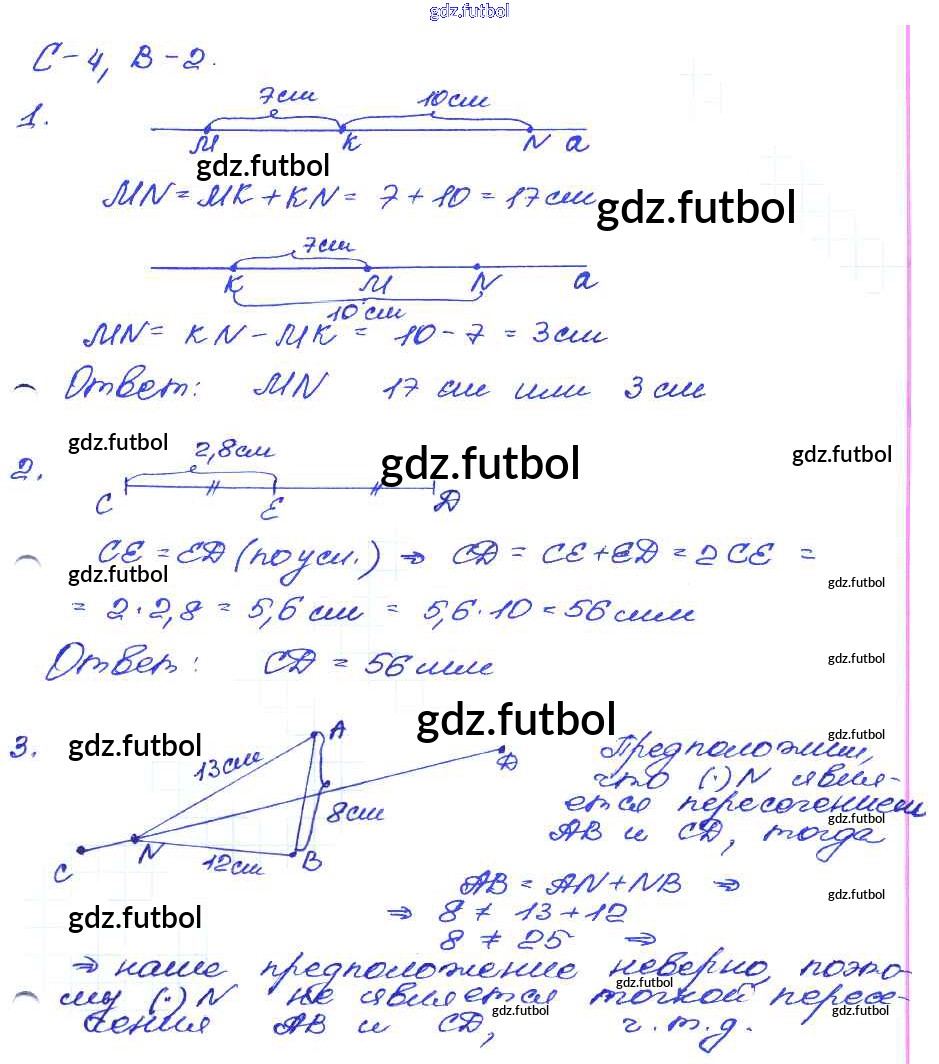 gdz.futbol
С-4, В-2.
1.
7см 10см
M K N a
gdz.futbol
MN = MK + KN = 7 + 10 = 17 см
gdz.futbol
7см
K M N a
10 см
MN = KN - MK = 10 - 7 = 3см
Ответ: MN 17 см или 3 см
gdz.futbol gdz.futbol gdz.futbol
2.
2,8см
C E D
CE = ED (по усл.) ⇒ CD = CE + ED = 2 CE =
gdz.futbol gdz.futbol
= 2 · 2,8 = 5,6 см = 5,6 · 10 = 56 мм
Ответ: CD = 56 мм
gdz.futbol
gdz.futbol
3.
gdz.futbol
A
gdz.futbol
13см
D
8см
N
C
12см
B
Предположим,
что (·) N явля-
ется пересечением
gdz.futbol
AB и CD, тогда
AB = AN + NB ⇒
gdz.futbol
⇒ 8 ≠ 13 + 12
gdz.futbol
8 ≠ 25 ⇒
⇒ наше предположение неверно, поэто-
gdz.futbol
му (·) N не является точкой пересе-
gdz.futbol gdz.futbol
чения AB и CD, ч.т.д.